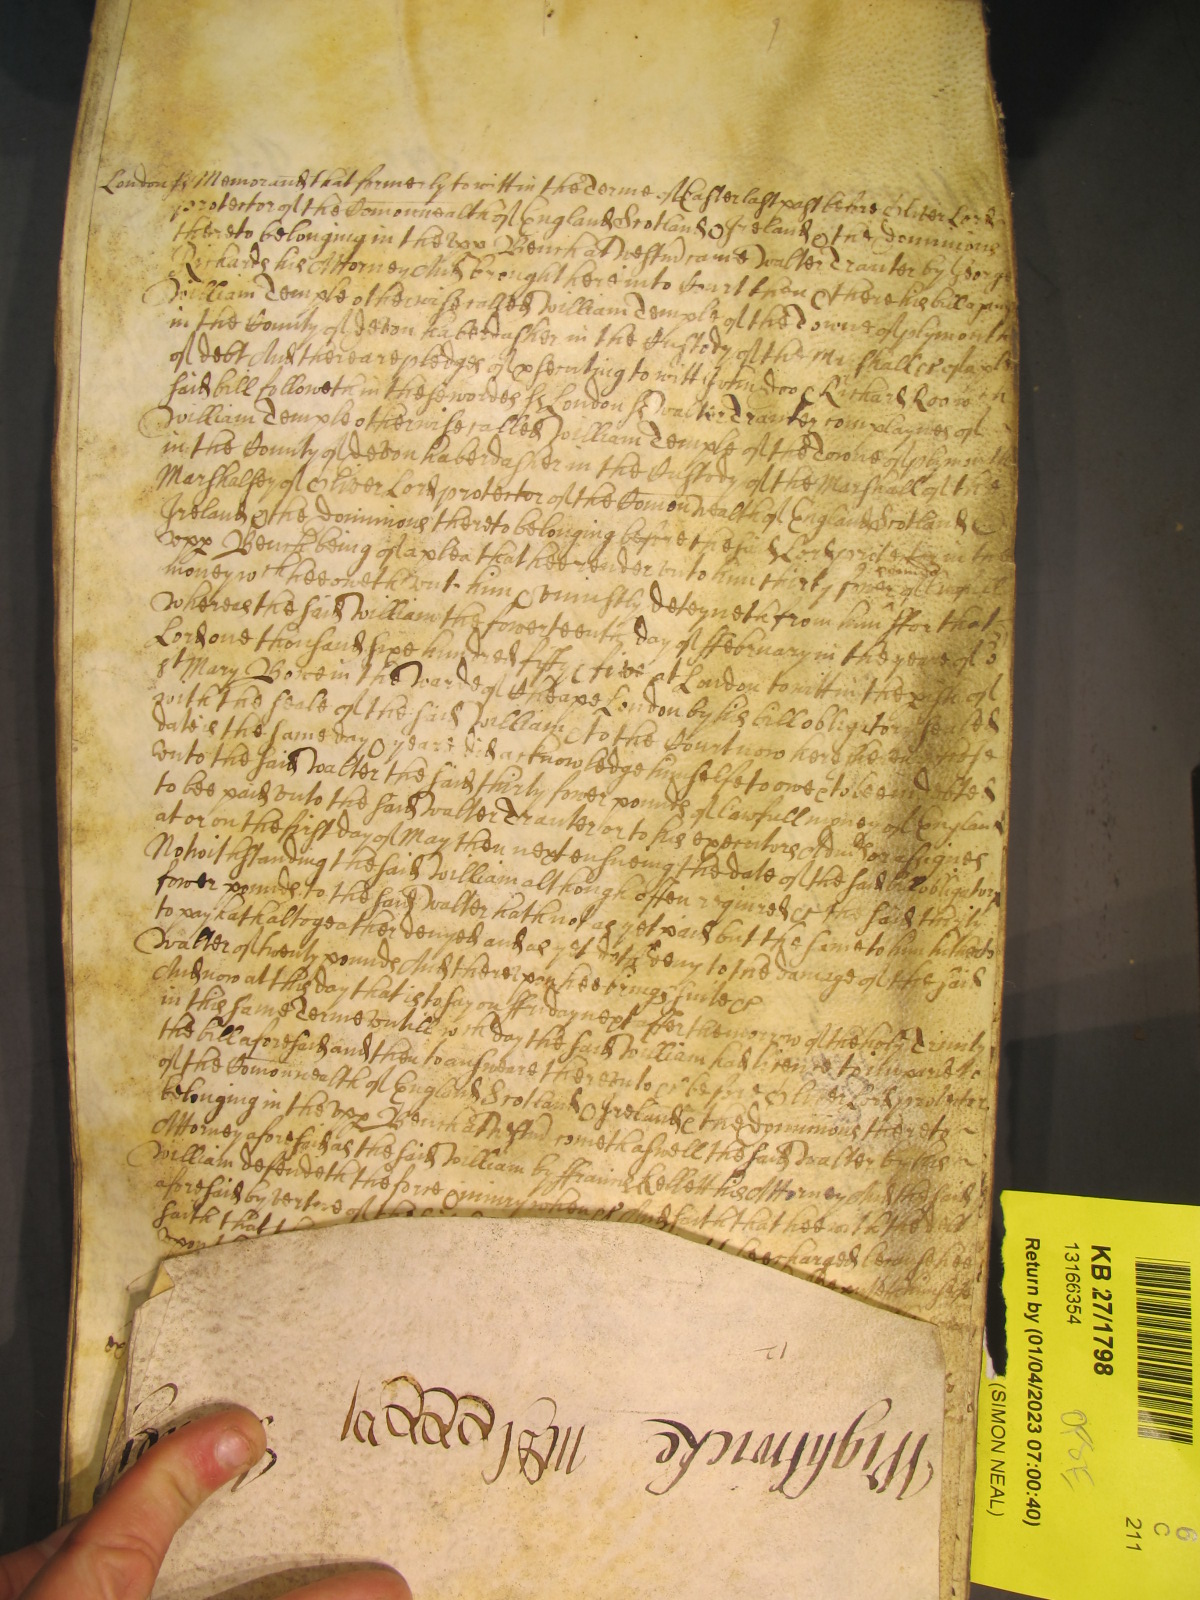 London ss Memorand that formerly to witt in the Terme of Easter last past before Oliver Lord
protector of the Comonwealth of England Scotland & Ireland & the dominions
thereto belonging in the upp Bench at Westm came Walter Tranter by George
Richards his Attorney And brought here into Court then & there his bill against
William Temple otherwise called William Temple of the Towne of plymouth
in the County of devon haberdasher in the Custody of the Marshall &c of a plea
of debt And there are pledges of psecuting to witt John doo & Richard Roo wch
said bill followeth in these wordes ss London ss Walter Tranter complaynes of
William Temple otherwise called William Temple of the Towne of plymouth
in the County of devon haberdasher in the Custody of the Marshall of the
Marshalsey of Oliver Lord protector of the Comonwealth of England Scotland &
Ireland & the dominions thereto belonging before the said Lord protector in the
upp Bench being of a plea that hee render unto him thirty fower pounds of
money wch hee oweth unto him & uniustly deteyneth from him ffor that
Whereas the said William the fowerteenth day of ffebruary in the yeere of o
Lord one thousand sixe hundred fifty & five at London to witt in the pish of
st Mary Bowe in the Warde of Cheape London by his bill obligatory sealed
with the seale of the said William & to the Court now here shewed whose
date is the same day & yeare did acknowledge himselfe to owe & to bee indebted
unto the said Walter the said thirty fower pounds of lawfull money of England
to bee paid unto the said Walter Tranter or to his executors or assignes
at or on the first day of May then next ensueing the date of the said bill obligatory
Notwithstanding the said William although often required &c the said thirty
fower pounds to the said Walter hath not as yet paid but the same to him hitherto
to pay hath altogeather denyed and as yet doth deny to the damage of the said
Walter of twenty pounds And thereupon hee brings suite &c
And now at this day that is to say on ffriday next after the morrow of the holy Trinity
in this same Terme untill wch day the said William had licence to imparle to
the bill aforesaid and then to answeare thereunto &c before Oliver Lord protector
of the Comonwealth of England Scotland & Ireland & the dominions thereto
belonging in the upp Bench at Westm cometh aswell the said Walter by his
Attorney aforesaid as the said William by ffrancis Kellett his Attorney And the said
William defendeth the force & iniury when &c And saith that hee with the debt
aforesaid by vertue of the
saith that bee charged because hee
Wightwicke
KB 27/1798
13166354
Return by (01/04/2023 07:00:40)
(SIMON NEAL)
6
C
211